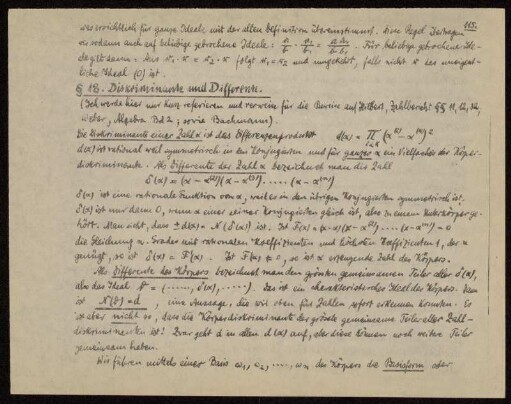 115.
was ersichtlich für ganze Ideale mit der alten Definition übereinstimmt. Diese Regel übertragen
wir sodann auch auf beliebige gebrochene Ideale: Für beliebige gebrochene Ide-
ale gilt dann: Aus folgt und umgekehrt, falls nicht das uneigent-
liche Ideal (0) ist.
§ 18. Diskriminante und Differente.
(Ich werde hier nur kurz referieren und verweise für die Beweise auf Hilbert, Zahlbericht §§
Weber, Algebra Bd 2; sowie Bachmann).
Die Diskriminante einer Zahl α ist das Differenzenprodukt
d(α) ist rational weil symmetrisch in den Konjugierten und für ganzes α ein Vielfaches der Körper-
diskriminante. Als Differente der Zahl α bezeichnet man die Zahl
δ(α) = (α - α⁽²⁾)(α - α⁽³⁾) ..... (α - α⁽ⁿ⁾)
δ(α) ist eine rationale Funktion von α, weil es in den übrigen Konjugierten symmetrisch ist.
δ(α) ist nur dann 0, wenn α einer seiner Konjugierten gleich ist, also zu einem Unterkörper ge-
hört. Man sieht, dass ± d(α) = N(δ(α)) ist. Ist
die Gleichung n. Grades mit rationalen Koeffizienten und höchstem Koeffizienten 1, der α
genügt, so ist δ(α) = F'(α). Ist F'(α) ≠ 0, so ist α erzeugende Zahl des Körpers.
Als Differente des Körpers bezeichnet man den grössten gemeinsamen Teiler aller δ(α),
also das Ideal Das ist ein charakteristisches Ideal des Körpers. Dann
ist , eine Aussage, die wir oben für Zahlen sofort erkennen konnten. Es
ist aber nicht so, dass die Körperdiskriminante der grösste gemeinsame Teiler aller Zahl-
diskriminanten ist! Zwar geht d in allen d(α) auf, aber diese können noch weitere Teiler
gemeinsam haben.
Wir führen mittels einer Basis ω₁, ω₂, ..., ωₙ des Körpers die Basisform oder